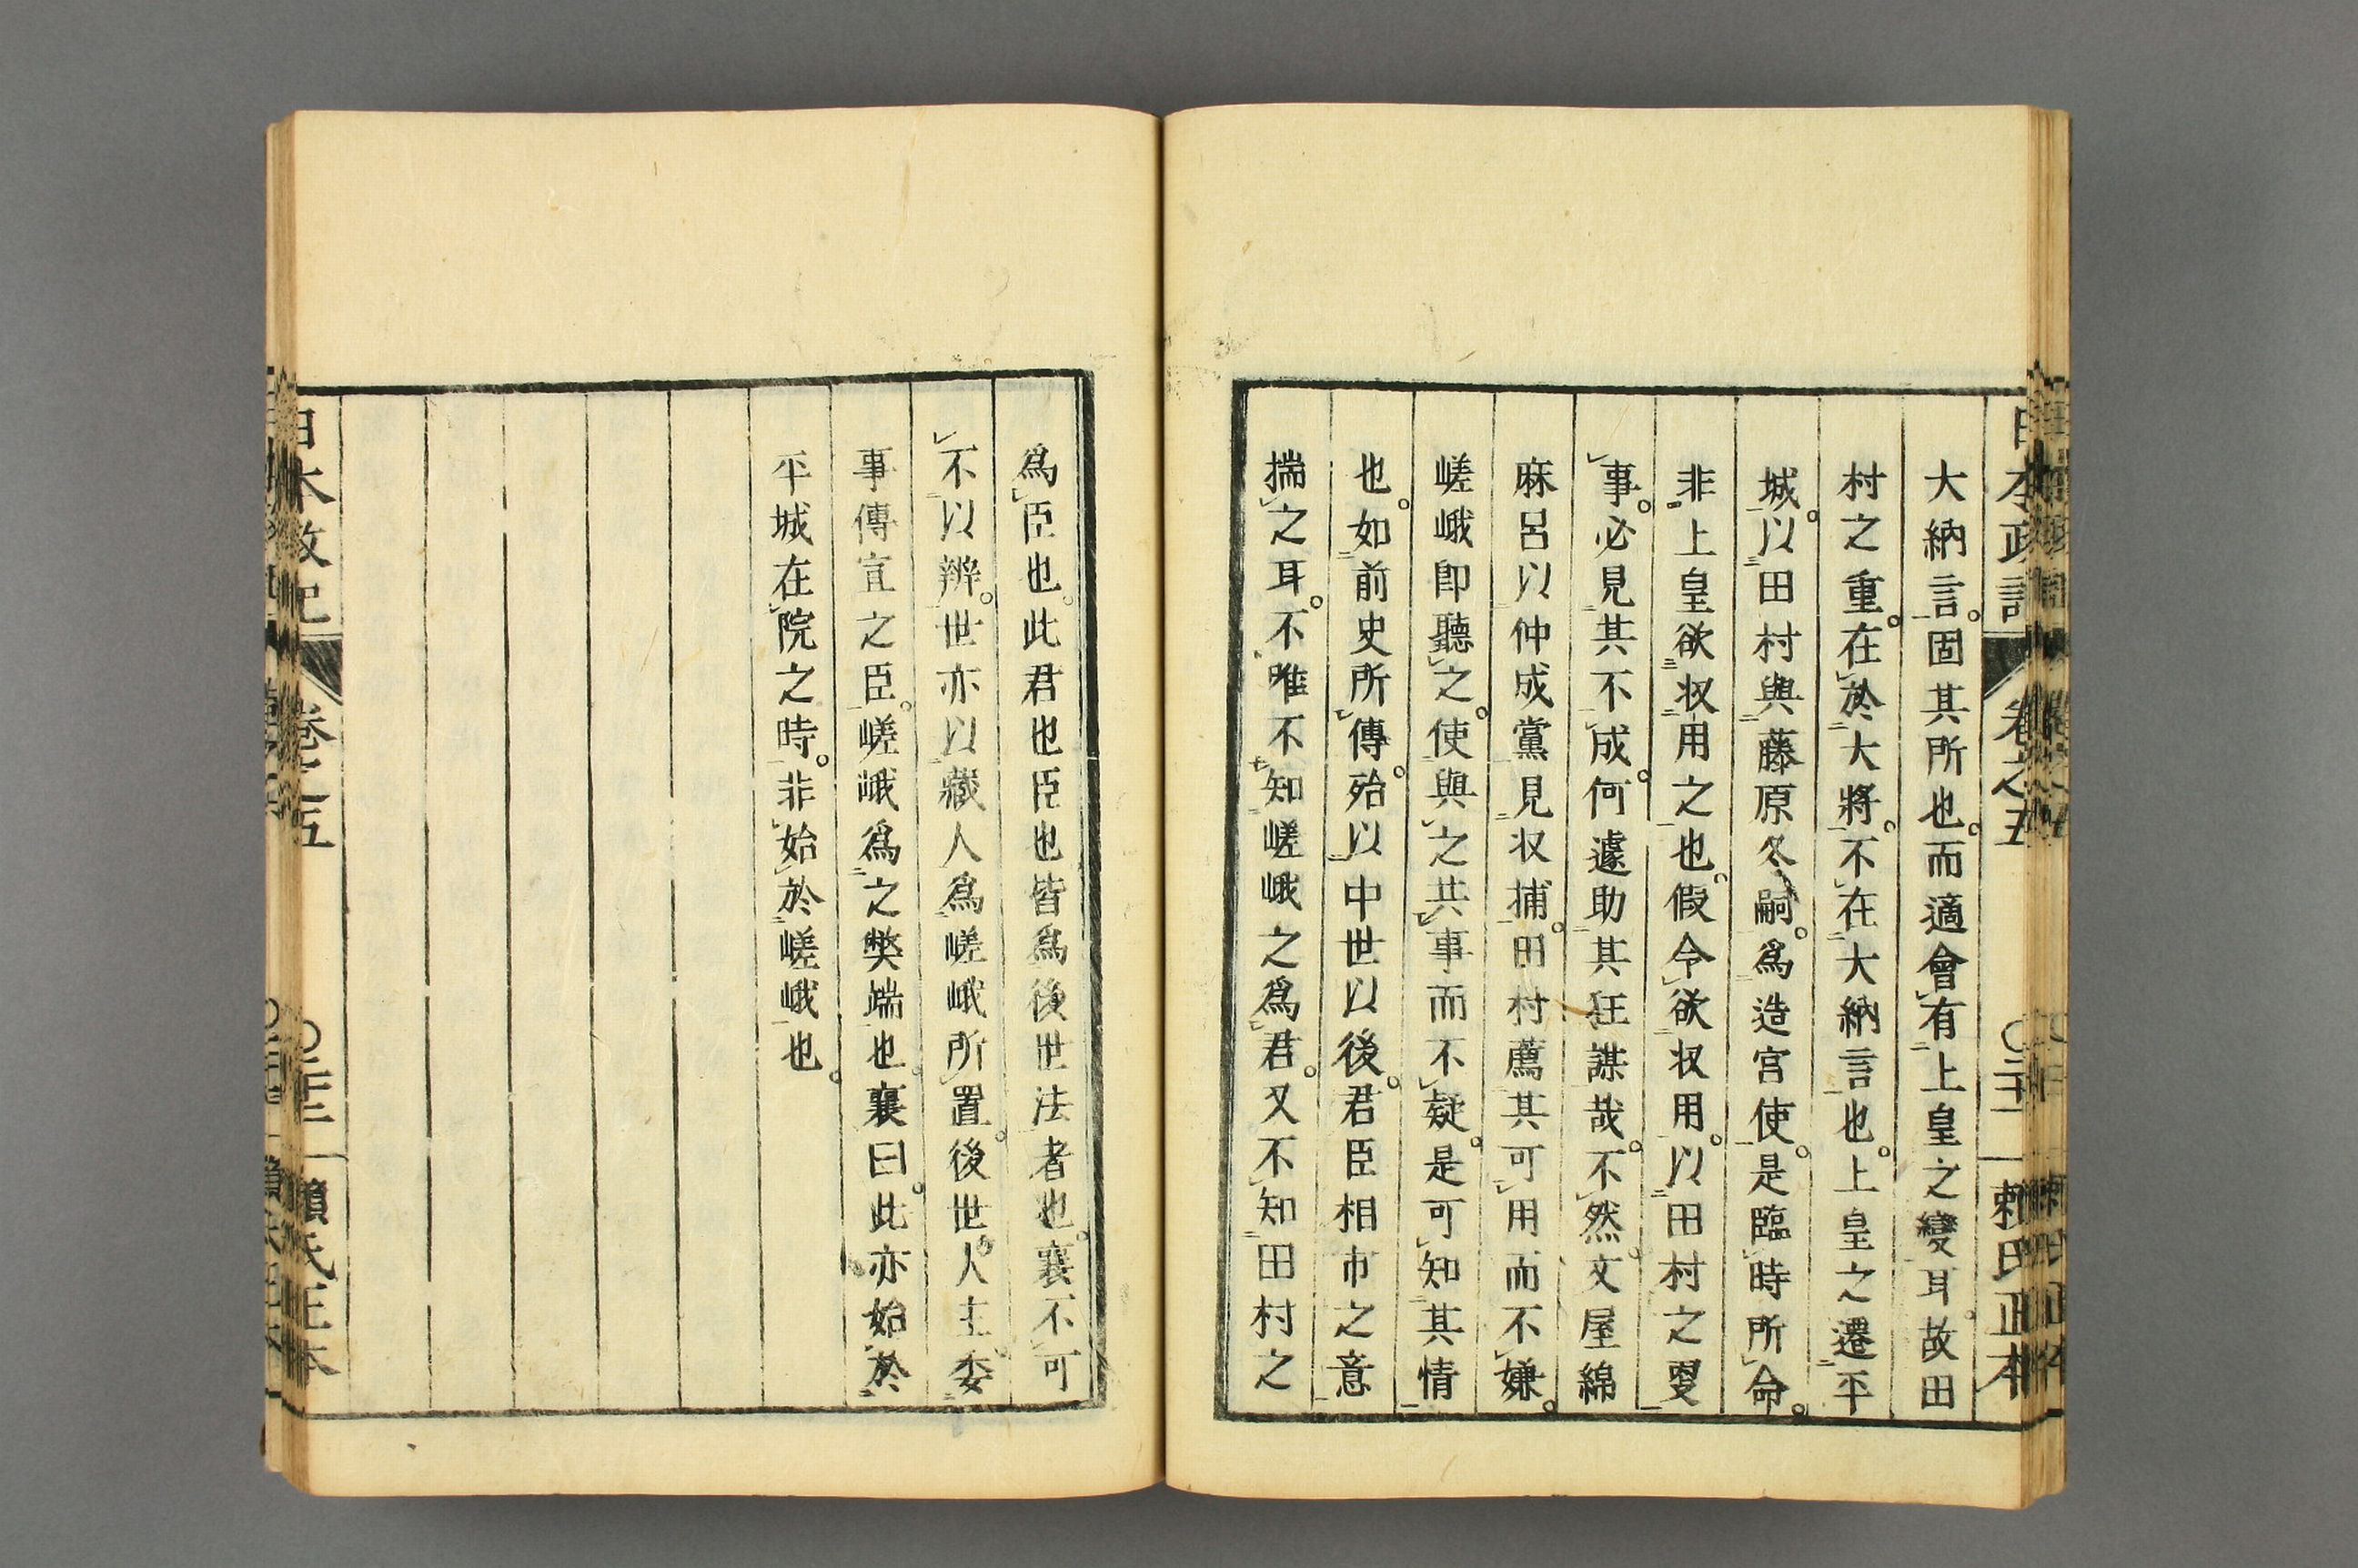 日本政記
卷之五
賴氏正本
大納言。固其所也。而適會有上皇之變耳。故田
村之重。在於大將。不在大納言也。上皇之遷平
城。以田村與藤原冬嗣。爲造宮使。是臨時所命。
非上皇欲収用之也。假令欲収用。以田村之更
事。必見其不成。何遽助其狂謀哉。不然。文屋綿
麻呂以仲成黨見収捕。田村薦其可用而不嫌。
嵯峨卽聽之。使與之共事而不疑。是可知其情
也。如前史所傳。殆以中世以後。君臣相市之意
揣之耳。不唯不知嵯峨之爲君。又不知田村之
爲臣也。此君也臣也皆爲後世法者也。襄不可
不以辨。世亦以藏人爲嵯峨所置。後世人主委
事傳宣之臣。嵯峨爲之弊端也。襄曰。此亦始於
平城在院之時。非始於嵯峨也。
日本政記
卷之五
賴氏正本